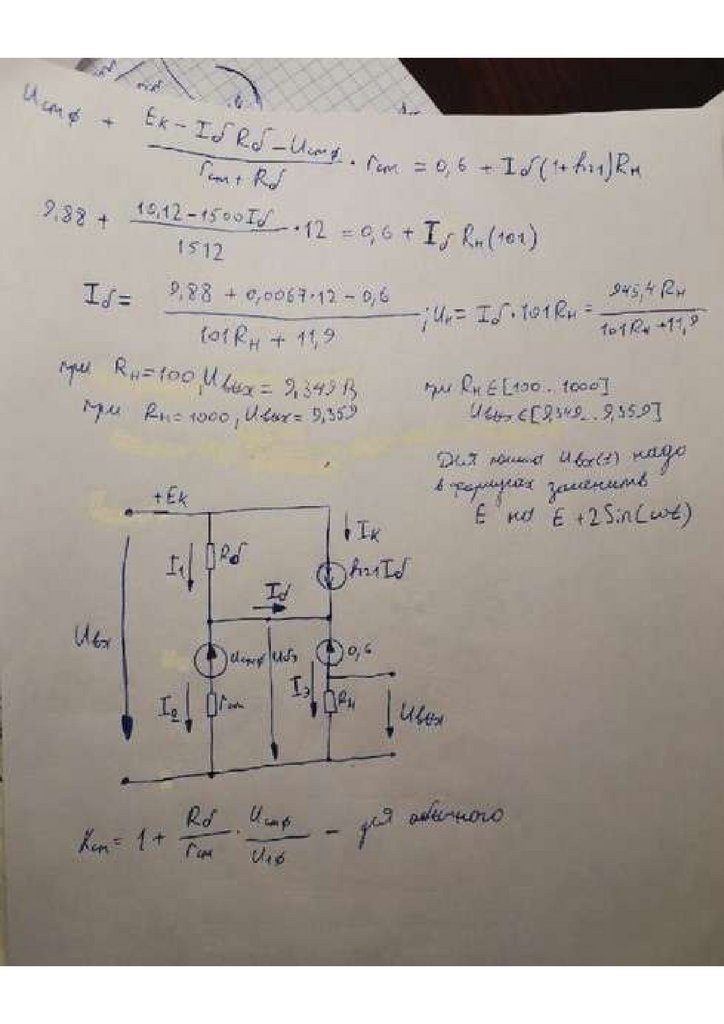 Uстф + (Eк - Iб Rб - Uстф)/(rст + Rб) · rст = 0,6 + Iб(1+h21)Rн
9.88 + (10,12 - 1500Iб)/1512 · 12 = 0,6 + Iб Rн (101)
Iб = (9.88 + 0,0067·12 - 0,6)/(101Rн + 11,9) ; Uн = Iб·101Rн = 945,4 Rн/(101Rн + 11,9)
при Rн=100, Uвых = 9,349 В
при Rн=1000, Uвых = 9,359
при Rн∈[100..1000]
Uвых∈[9,349..9,359]
Для Uвх(t) надо
в формулах заменить
E на E+2Sin(ωt)
+Eк
Iк
I1
Rб
h21Iб
Iб
Uвх
Uстф
Uбэ
0,6
I2
rст
Iэ
Rн
Uвых
Kст = 1 + Rб/rст · Uстф/U1ф - для обычного